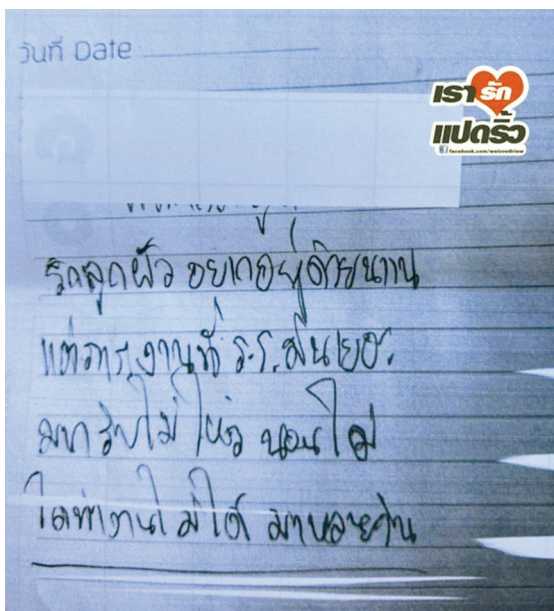 วันที่ Date
เรารัก
แปดริ้ว
facebook.com/welove8riew
รักลูกผัว อยากอยู่ด้วยนาน
แต่ภาระงานที่ ร.ร. มันเยอะ
รับไม่ไหว นอนไม่
ได้ทำงานไม่ได้ มาหลายวัน